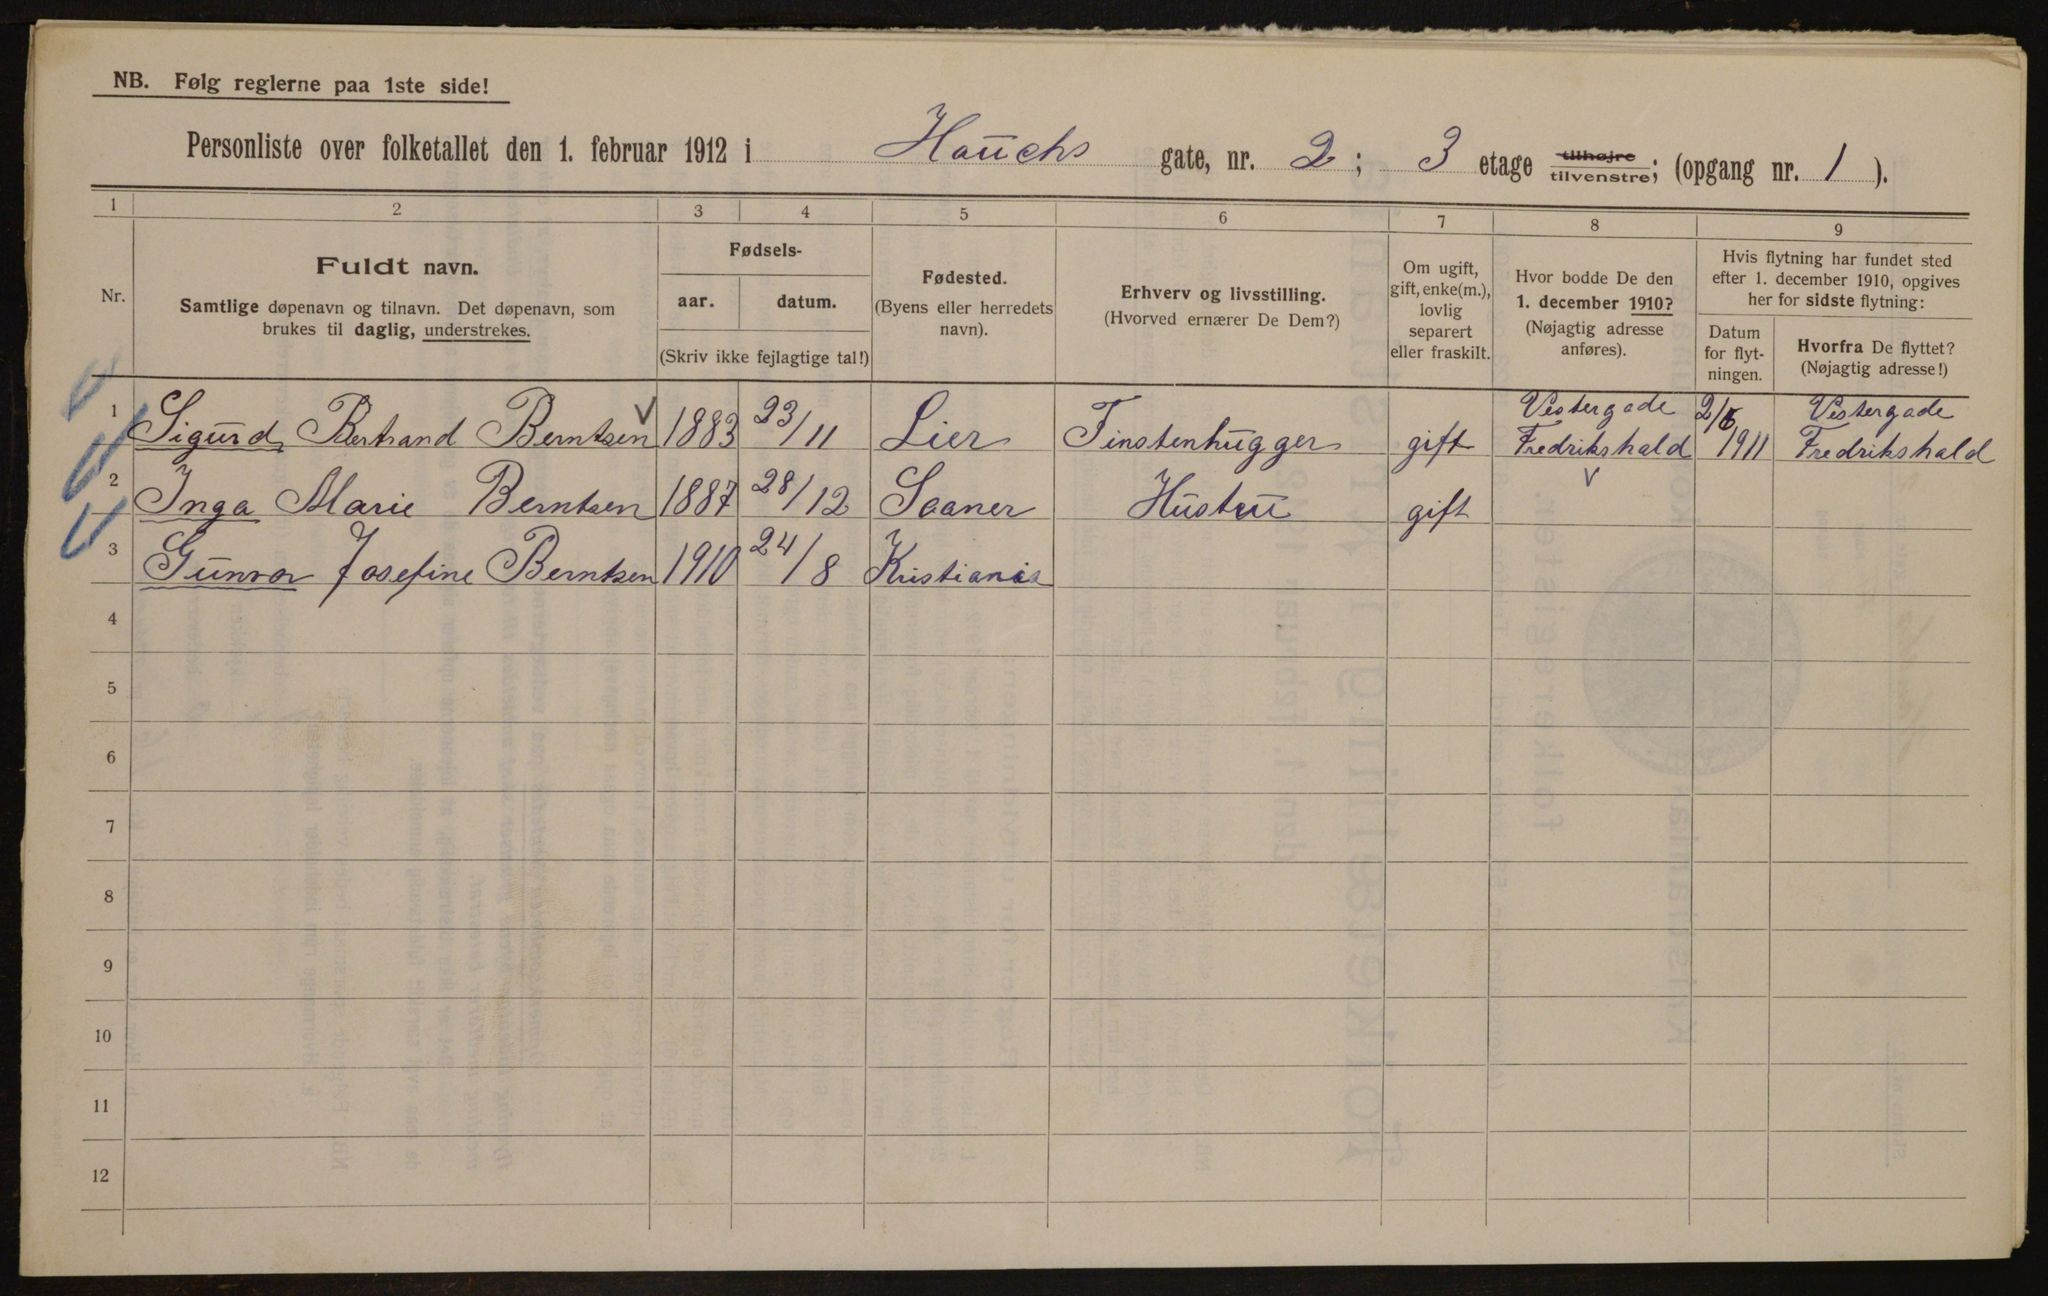 NB. Følg reglerne paa 1ste side!
Personliste over folketallet den 1. februar 1912 i Hauchs gate, nr. 2; 3 etage tilhøjre tilvenstre; (opgang nr. 1 ).
1 2 3 4 5 6 7 8 9
Nr.
Fuldt navn.
Samtlige døpenavn og tilnavn. Det døpenavn, som
brukes til daglig, understrekes.
Fødsels-
aar. datum.
(Skriv ikke fejlagtige tal!)
Fødested.
(Byens eller herredets
navn).
Erhverv og livsstilling.
(Hvorved ernærer De Dem?)
Om ugift,
gift, enke(m.),
lovlig
separert
eller fraskilt.
Hvor bodde De den
1. december 1910?
(Nøjagtig adresse
anføres).
Hvis flytning har fundet sted
efter 1. december 1910, opgives
her for sidste flytning:
Datum
for flyt-
ningen.
Hvorfra De flyttet?
(Nøjagtig adresse!)
1 Sigurd Bertrand Berntsen 1883 23/11 Lier Finstenhugger gift Vestergade Fredrikshald 2/6 1911 Vestergade Fredrikshald
2 Inga Marie Berntsen 1887 28/12 Saaner Hustru gift
3 Gunvor Josefine Berntsen 1910 24/8 Kristiania
4
5
6
7
8
9
10
11
12